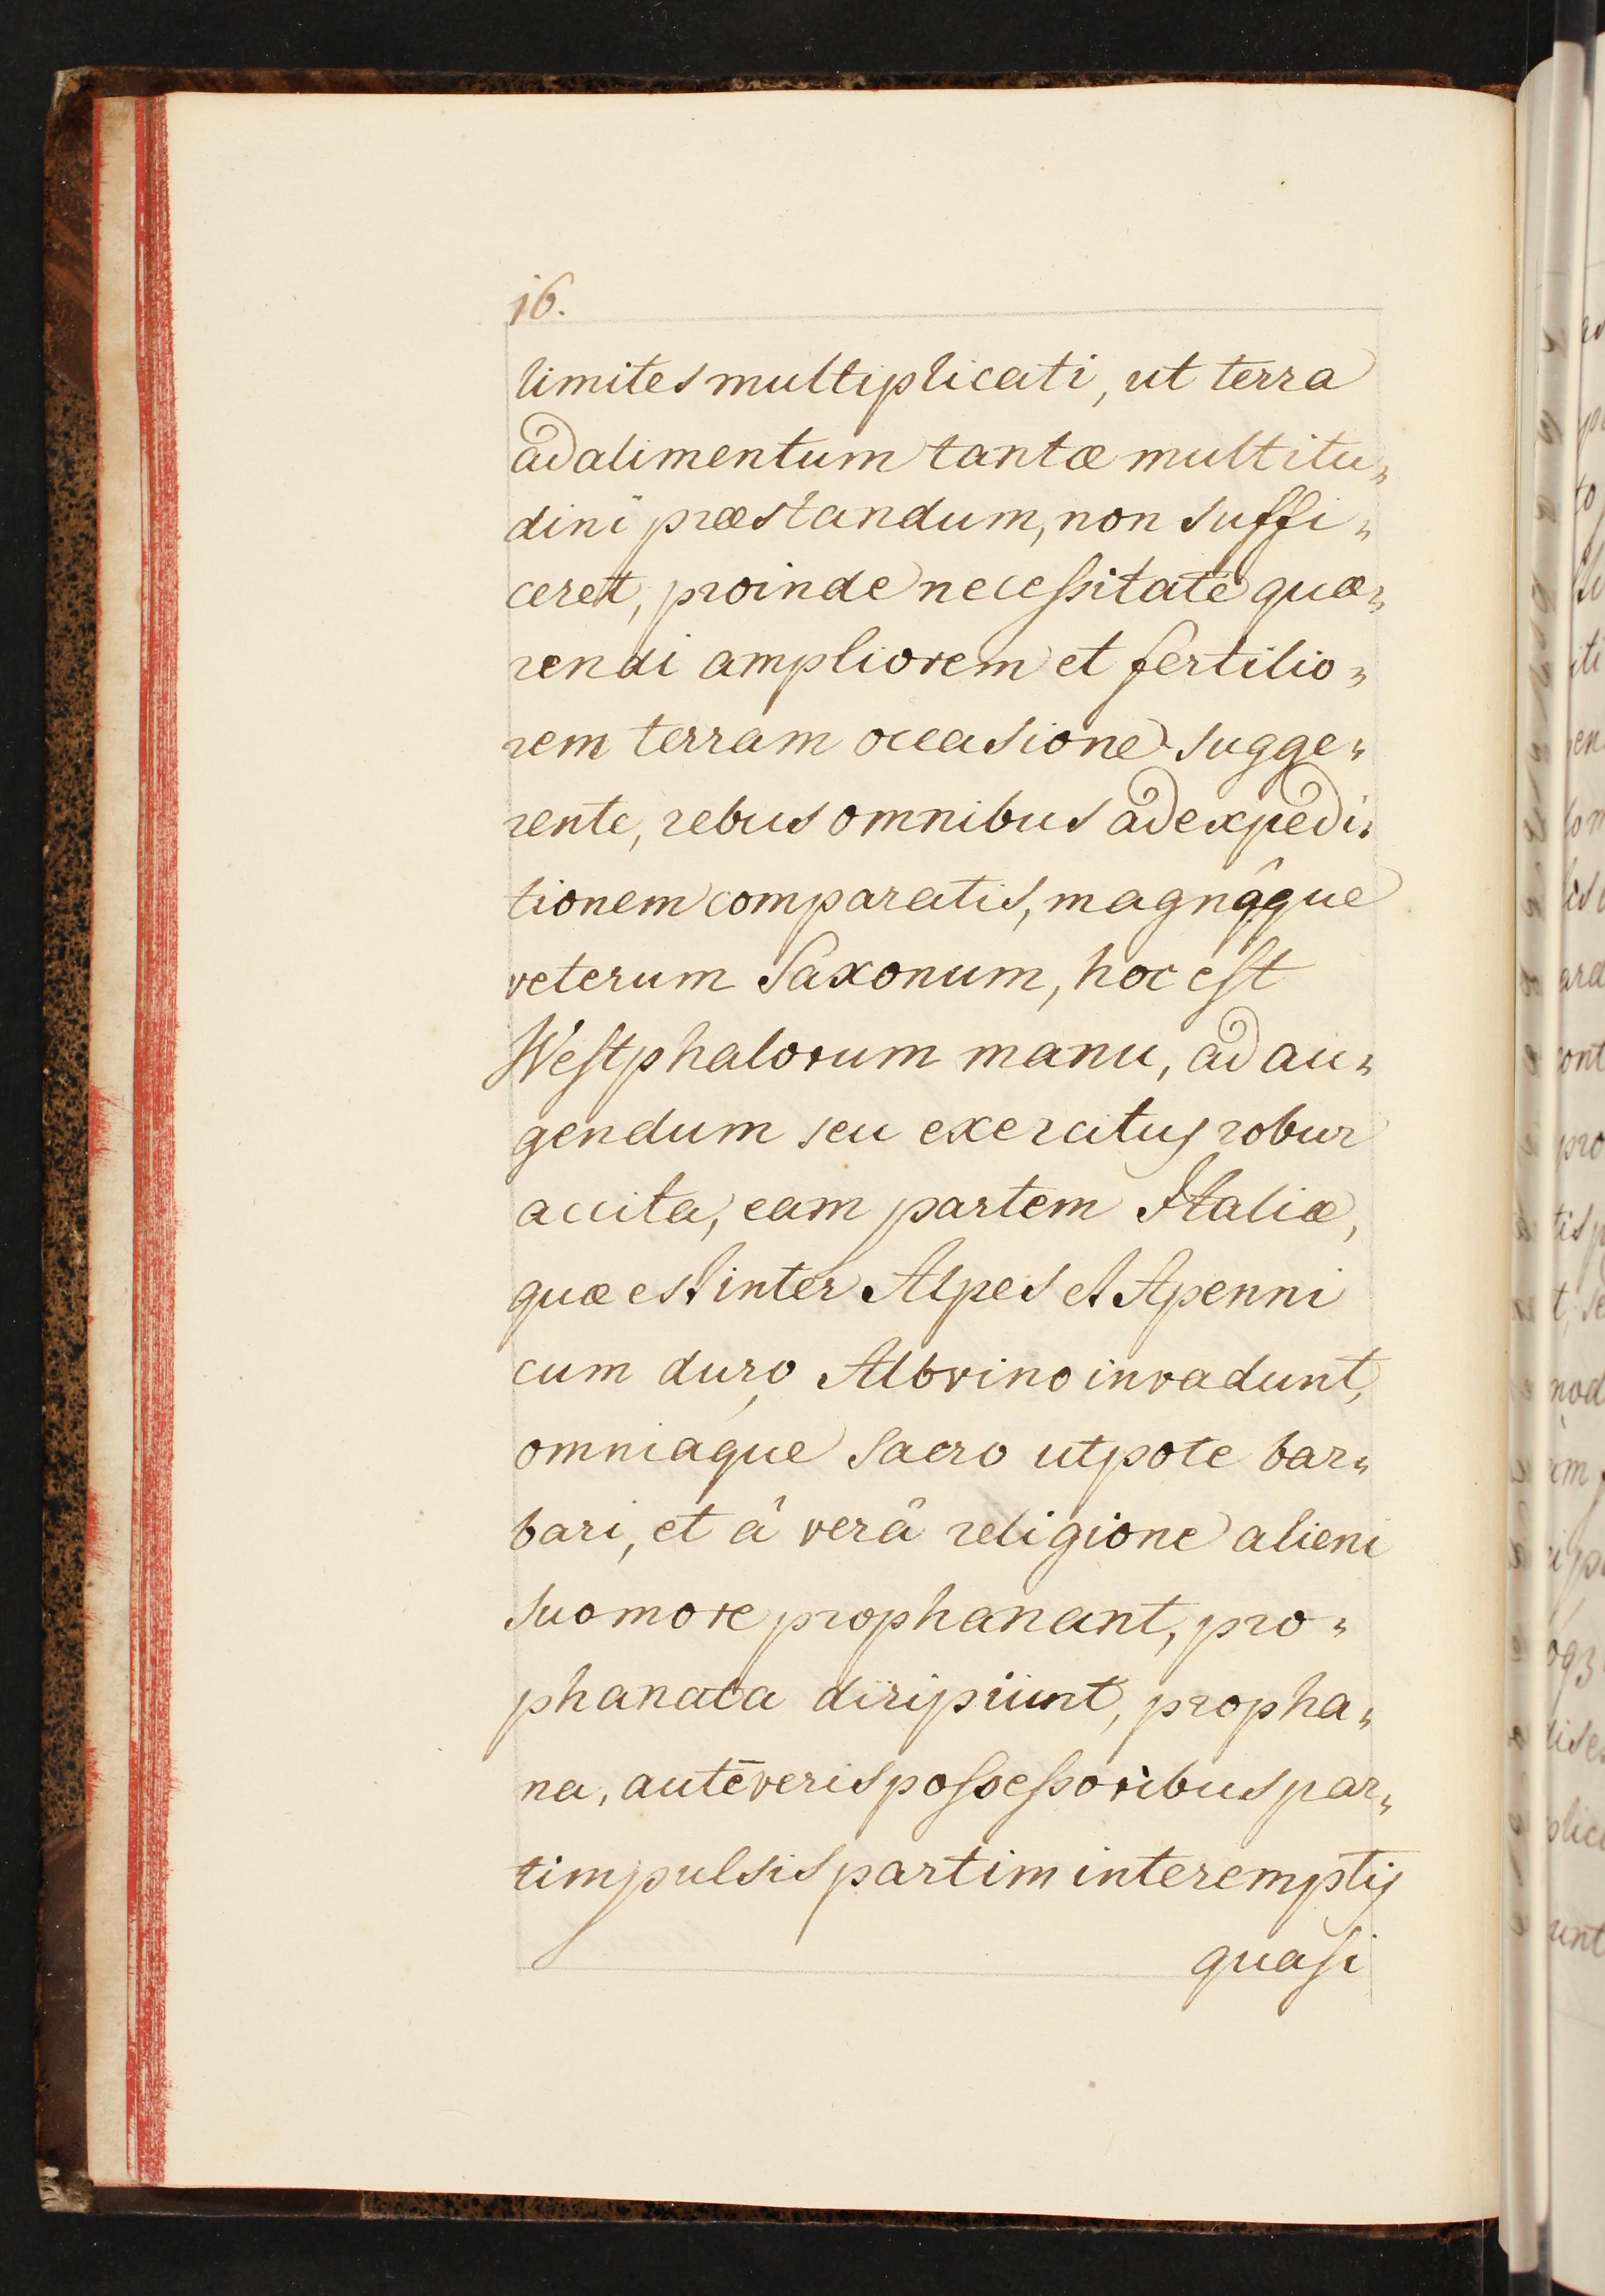 16.
limites multiplicati, ut terra
ad alimentum tantæ multitu„
dini præstandum, non suffi„
ceret, proinde necessitate quæ„
rendi ampliorem et fertilio„
rem terram occasione sugge„
rente, rebus omnibus ad expedi„
tionem comparatis, magnâque
veterum Saxonum, hoc est
Westphalorum manu, ad au„
gendum seu exercitus robur
accita, eam partem Italiæ,
quæ est inter Alpes et Apenni
cum duro Albvino invadunt,
omniaque sacro utpote bar„
bari, et â verâ religione alieni
suo more prophanant, pro„
phanata diripiunt, propha„
na, autē veris possessoribus par„
tim pulsis partim interemptis
quasi